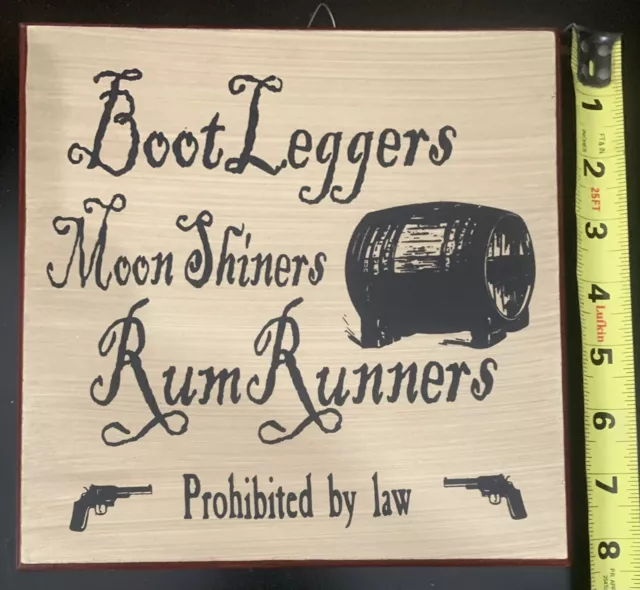 Boot Leggers
Moon Shiners
Rum Runners
Prohibited by law
1
2
25FT
3
4
Lufkin
5
6
7
8